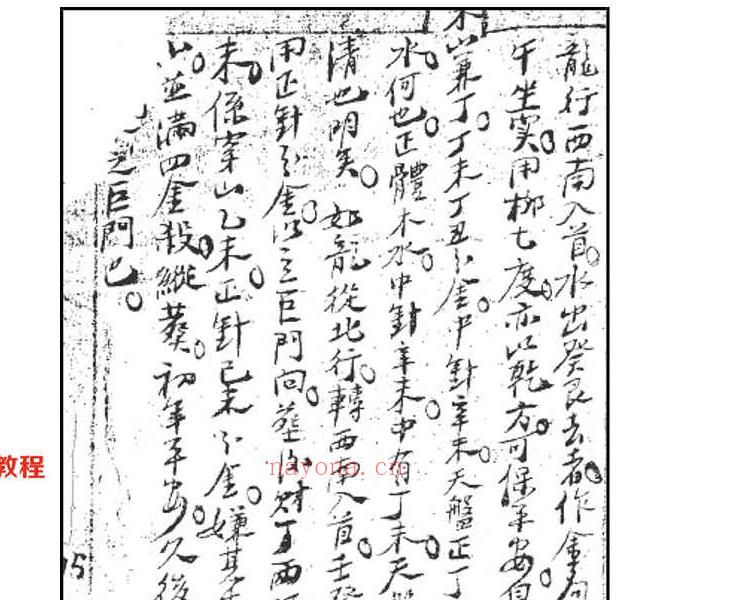 龍行西南入首水出癸艮去者作金向
午坐實用柳七度亦以乾方可保平安自
未山兼丁丁未丁丑分金中針辛未天盤正丁
水何也正體木水中針辛未中有丁未天盤
清也明矣如龍從北行轉西南入首壬癸
用正針分金以立巨門向葬由財丁兩
未係穿山乙未正針己未分金嫌其
山並滿四金殺縱葵初年平安久後
立巨門也
教程
nayona.cn
15